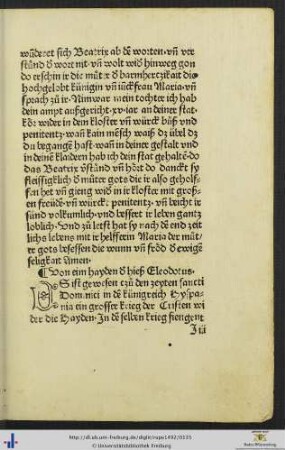 wūderet sich Beatrix ab dē worten. vn̄ ver
stūnd d̄ wort nit. vn̄ wolt wid̄ hinweg gon
do erschin ir die mūter d̄ barmhertzikait die
hochgelobt künigin vn̄ iūckfrau Maria. vn̄
sprach zů ir. Nimwar mein tochter ich hab
dein ampt außgericht. xv. iar an deiner stat.
kör wider in dein kloster vn̄ würck bůß vn̄
penitentz. wan̄ kain mēsch waiß dz übel dz
du begangē hast. wan̄ in deiner gestalt vnd
in deinē klaidern hab ich dein stat gehaltē. do
das Beatrix v̄stūnd vn̄ hört do danckt sy
fleissigklich d̄ můter gots die ir also geholf-
fen het vn̄ gieng wid̄ in ir kloster mit groß-
en freůdē. vn̄ würckt penitentz. vn̄ beicht ir
sünd volkumlich. vnd bessert ir leben gantz
loblich. Vnd zů letst hat sy nach dē end zeit
lichs lebens mit ir helfferin Maria der můt
ter gots besessen die wunn vn̄ frōd d̄ ewigē
seligkait Amen.
¶ Von eim hayden d̄ hieß Eleodotus.
ES ist gewesen czů den zeyten sancti
Dominici in dē künigreich Hyspa
nia ein grosser krieg der Cristen wi
der die Hayden. In dē selben krieg fiengent
http://dl.ub.uni-freiburg.de/diglit/rupe1492/0335
© Universitätsbibliothek Freiburg